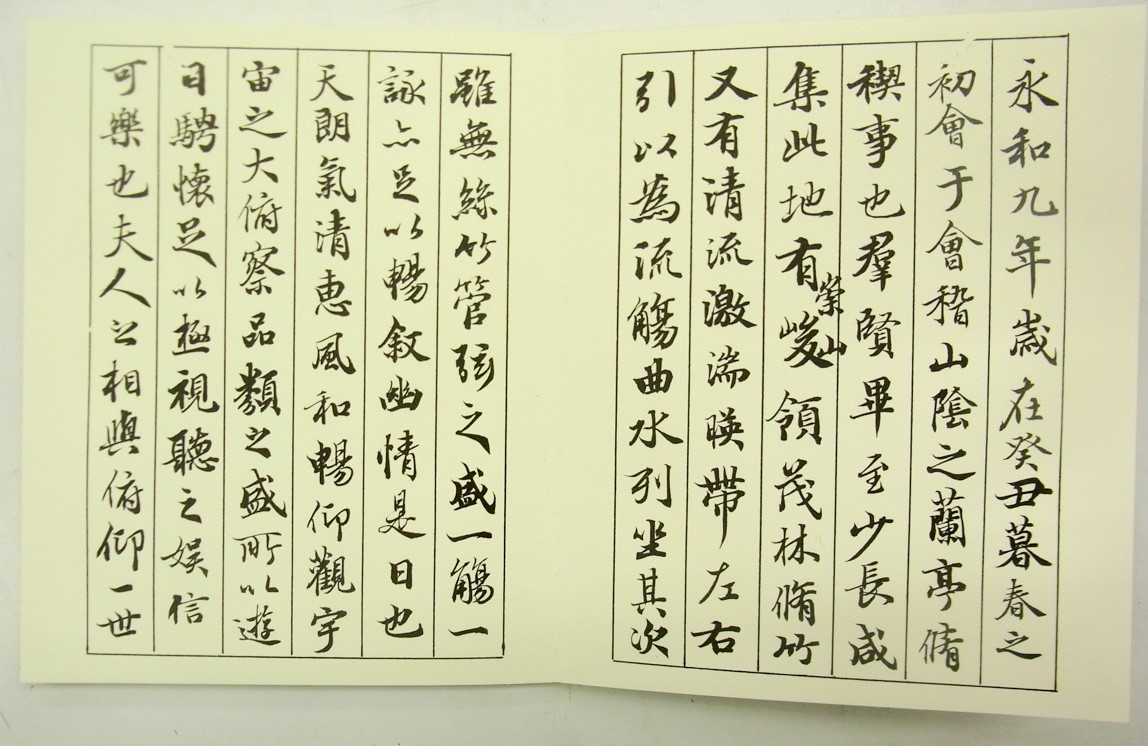 永和九年歲在癸丑暮春之
初會于會稽山陰之蘭亭脩
稧事也羣賢畢至少長咸
集此地有崇山峻領茂林脩竹
又有清流激湍暎帶左右
引以為流觴曲水列坐其次
雖無絲竹管弦之盛一觴一
詠亦足以暢敘幽情是日也
天朗氣清惠風和暢仰觀宇
宙之大俯察品類之盛所以遊
目騁懷足以極視聽之娛信
可樂也夫人之相與俯仰一世